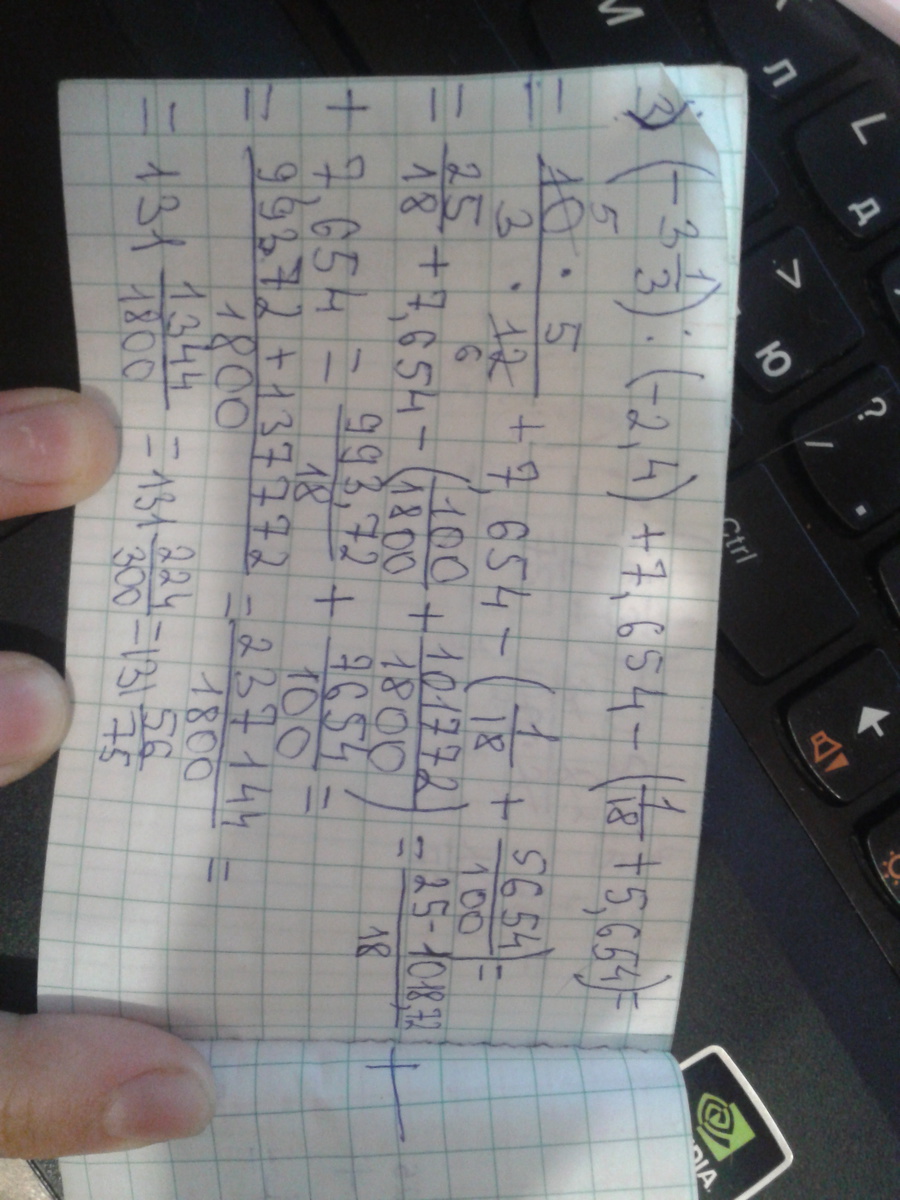 3) (-3 1/3) : (-2,4) + 7,654 - (1/18 + 5,654) =
= (10 · 5)/(3 · 12) + 7,654 - (1/18 + 5654/100) =
5
6
= 25/18 + 7,654 - (100/1800 + 101772/1800) = 25-1018,72/18
+ 7,654 = 993,72/18 + 7654/100 =
= 99372 + 137772/1800 = 237144/1800 =
= 131 1344/1800 = 131 224/300 = 131 56/75
М
Л
L Д
> Ю
? / .
Ctrl
NVIDIA